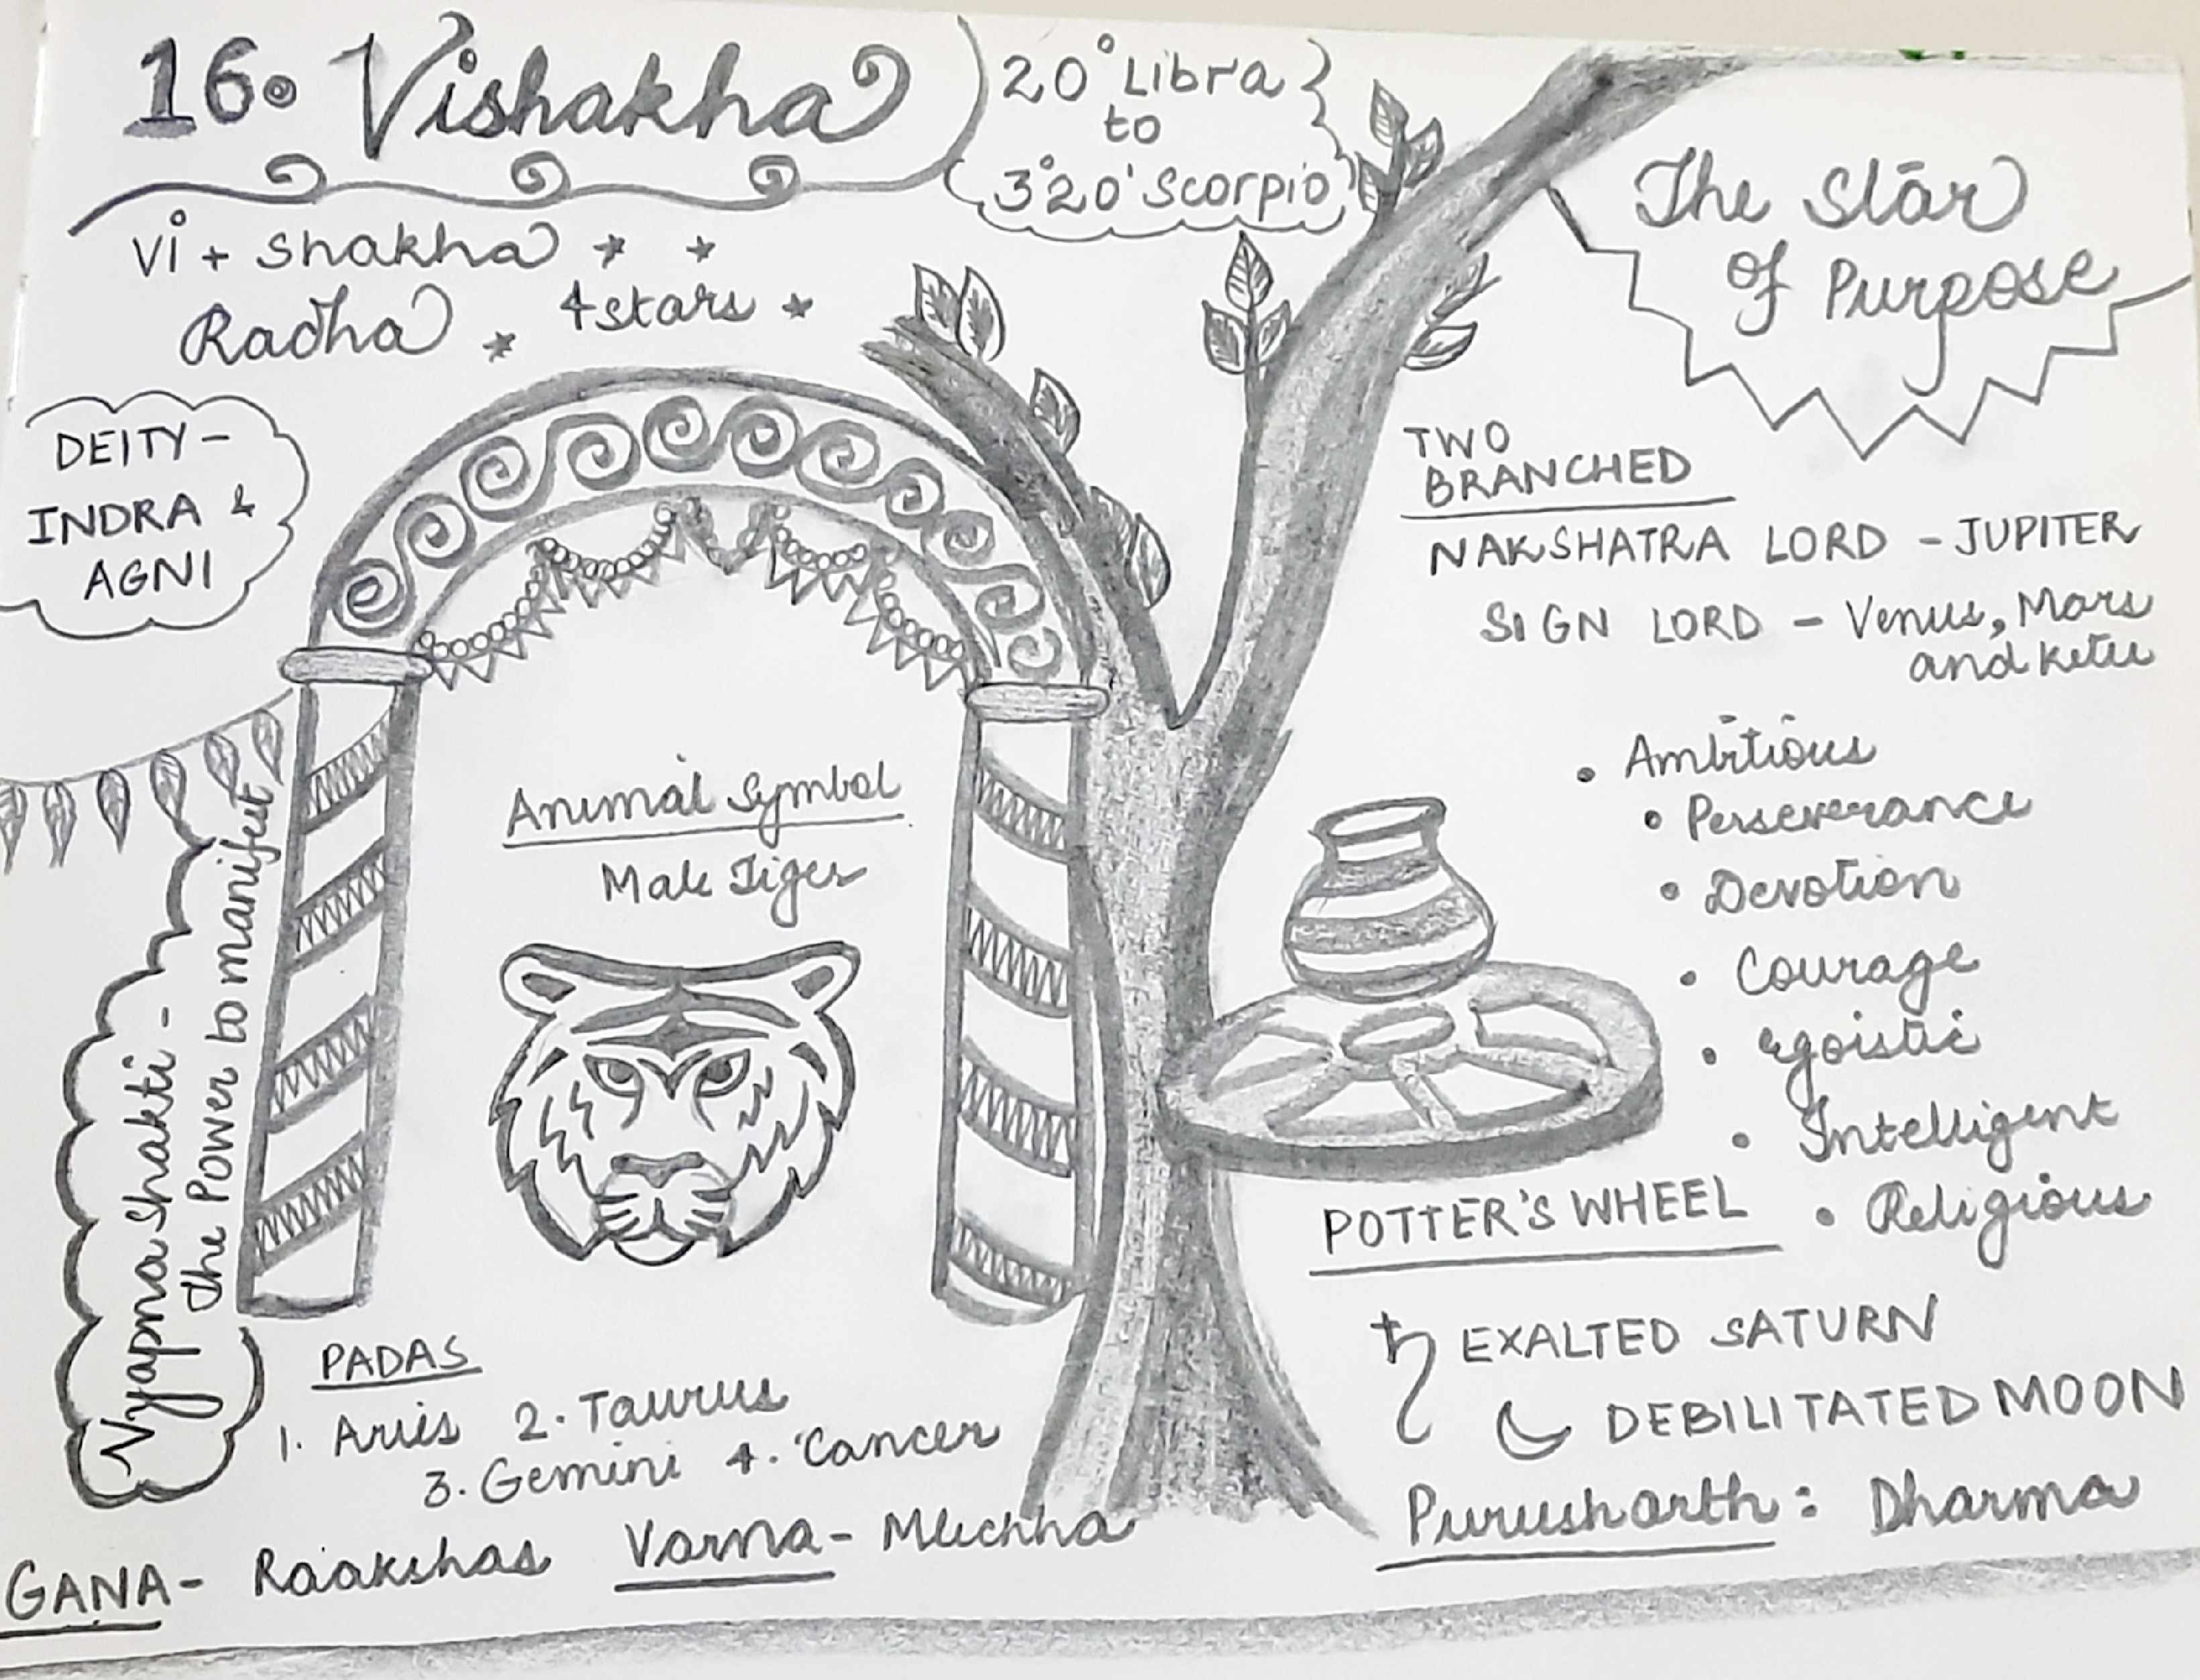 16. Vishakha
20° Libra
to
3°20' Scorpio
The Star
of Purpose
Vi + Shakha
Radha
4 stars
DEITY -
INDRA &
AGNI
TWO
BRANCHED
NAKSHATRA LORD - JUPITER
SIGN LORD - Venus, Mars
and Ketu
Animal Symbol
Male Tiger
• Ambitious
• Perseverance
• Devotion
• Courage
• Egoistic
• Intelligent
• Religious
POTTER'S WHEEL
Vyapna Shakti -
The Power to manifest
PADAS
1. Aries 2. Taurus
3. Gemini 4. Cancer
♄ EXALTED SATURN
DEBILITATED MOON
Purusharth: Dharma
GANA - Raakshas Varna - Mlechha